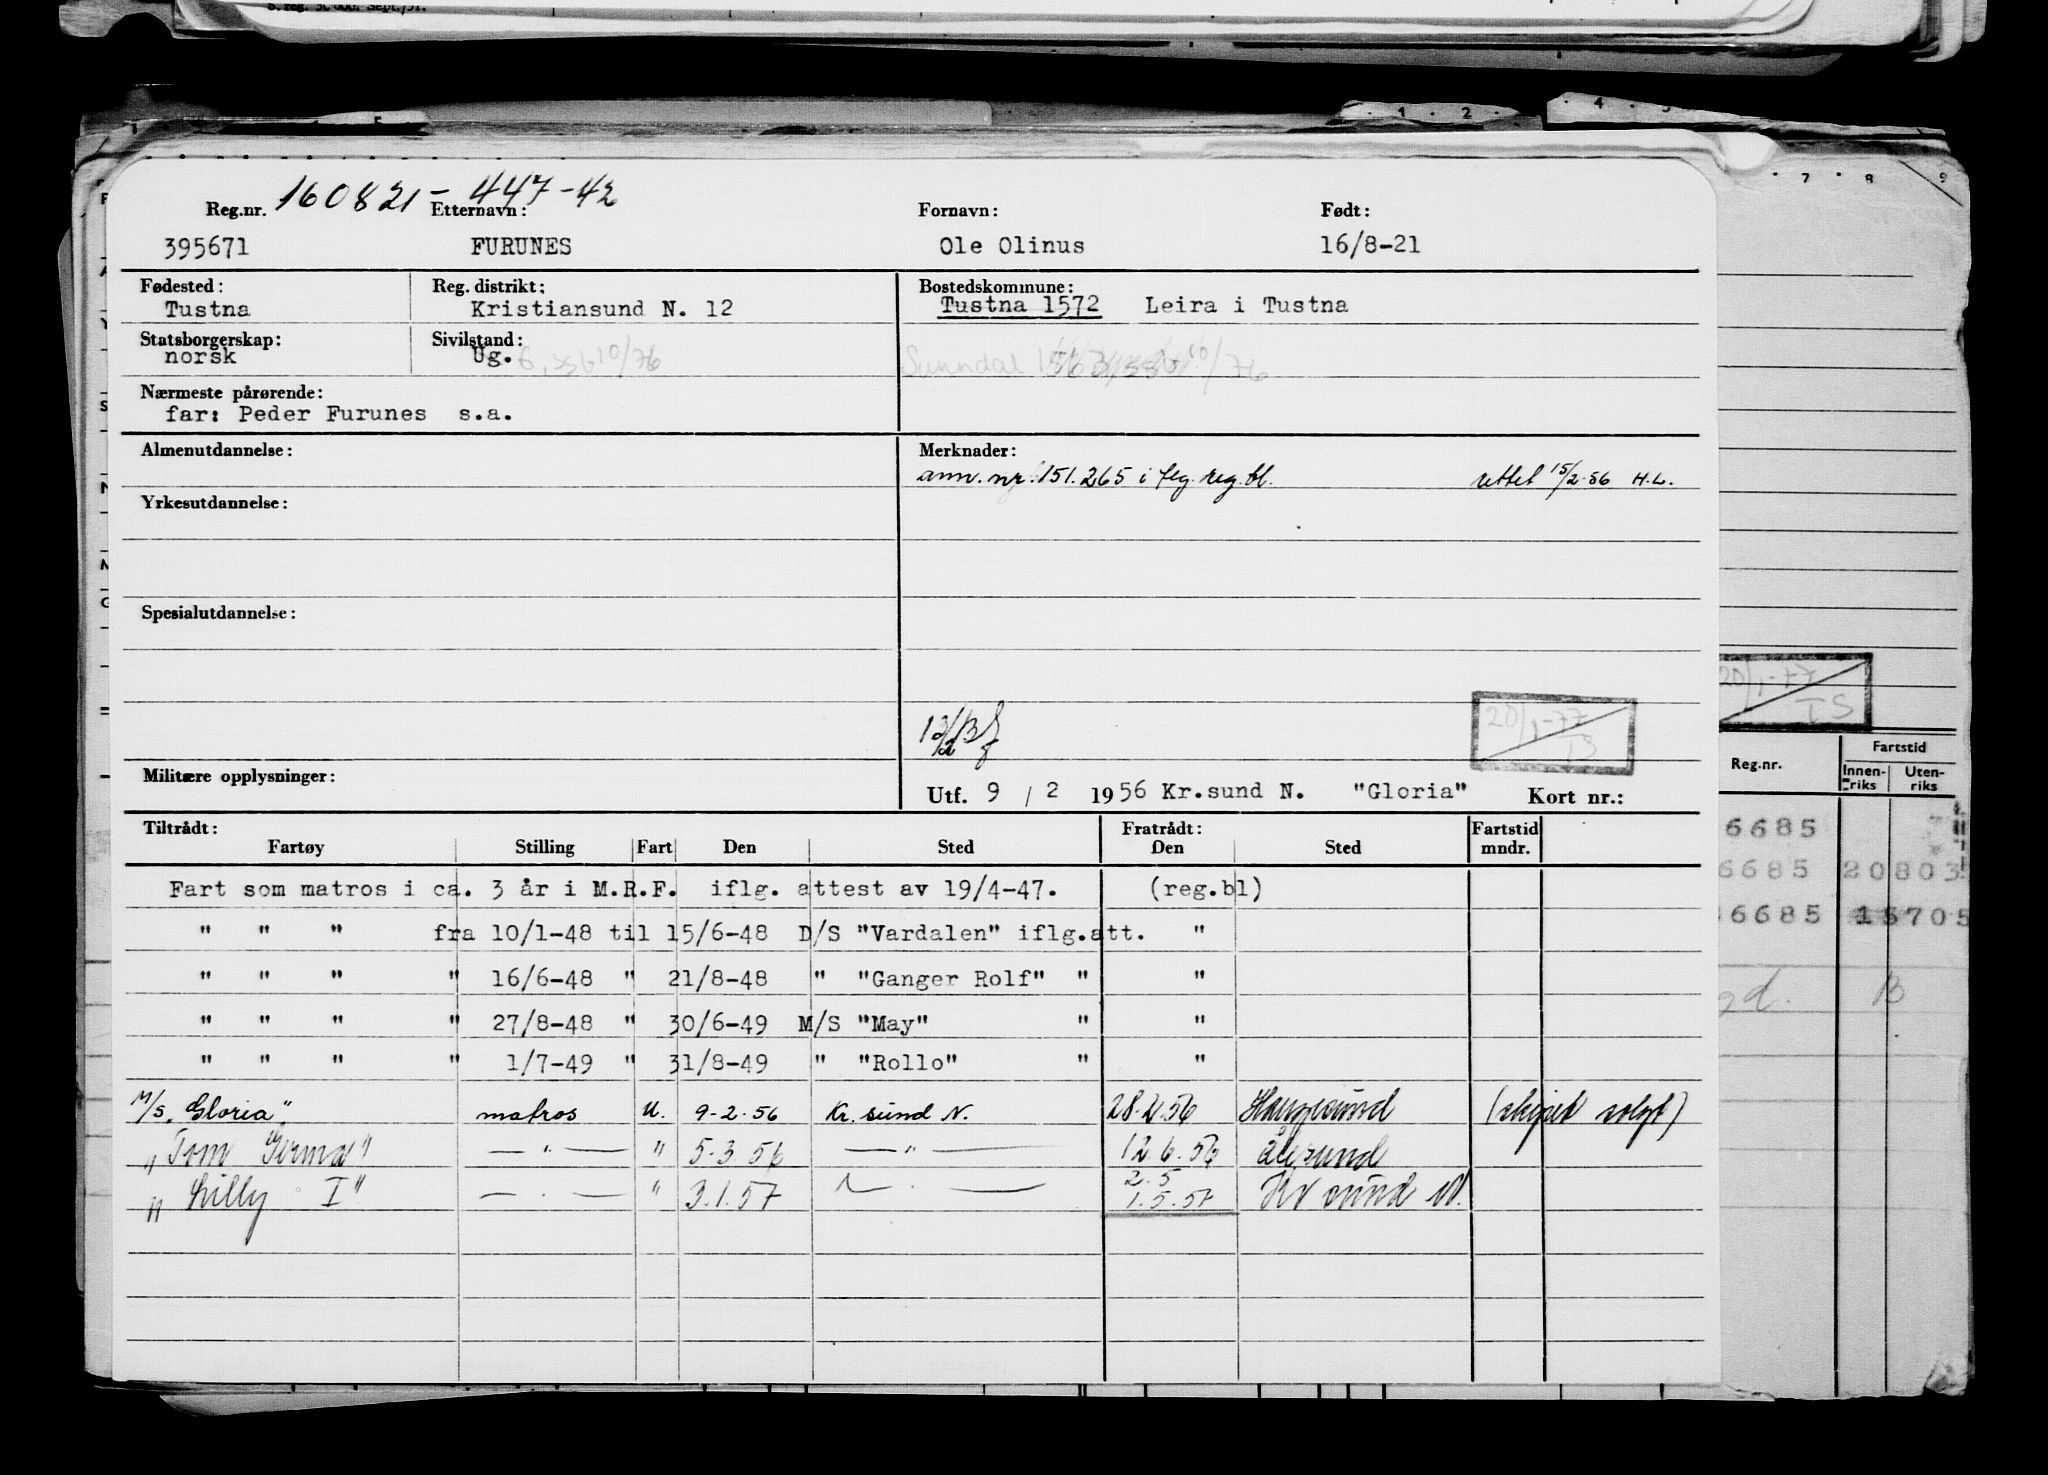 S. reg. 50.000. Sept./51.
160821-447-42
Reg.nr. Etternavn: Fornavn: Født:
395671 FURUNES Ole Olinus 16/8-21
Fødested: Reg. distrikt: Bostedskommune:
Tustna Kristiansund N. 12 Tustna 1572 Leira i Tustna
Statsborgerskap: Sivilstand:
norsk Ug. G, 10/76 Sunndal 1563, 10/76
Nærmeste pårørende:
far: Peder Furunes s.a.
Almenutdannelse: Merknader:
ann. nr. 151.265 i flg. reg. bl. rettet 15/2-56 H.L.
Yrkesutdannelse:
Spesialutdannelse:
20/1-77
IS
20/1-77
IS
Militære opplysninger:
Utf. 9 / 2 1956 Kr.sund N. "Gloria" Kort nr.:
Reg.nr. Fartstid
Innenriks Utenriks
Tiltrådt: Fratrådt: Fartstid
Fartøy Stilling Fart Den Sted Den Sted mndr.
Fart som matros i ca. 3 år i M.R.F. iflg. attest av 19/4-47. (reg.bl)
" " " fra 10/1-48 til 15/6-48 D/S "Vardalen" iflg.att. "
" " " " 16/6-48 " 21/8-48 " "Ganger Rolf" " "
" " " " 27/8-48 " 30/6-49 M/S "May" " "
" " " " 1/7-49 " 31/8-49 " "Rollo" " "
M/S "Gloria" matros U. 9-2-56 Kr. sund N. 28.2.56 Haugesund (skipet solgt)
" Tom Germa" — " — " 5.3.56 — " — 12.6.56 Ålesund
2.5
" Lilly I" — " — " 3.1.57 — " — 1.5.57 Kr sund N.
6685
6685 20803
6685 15705